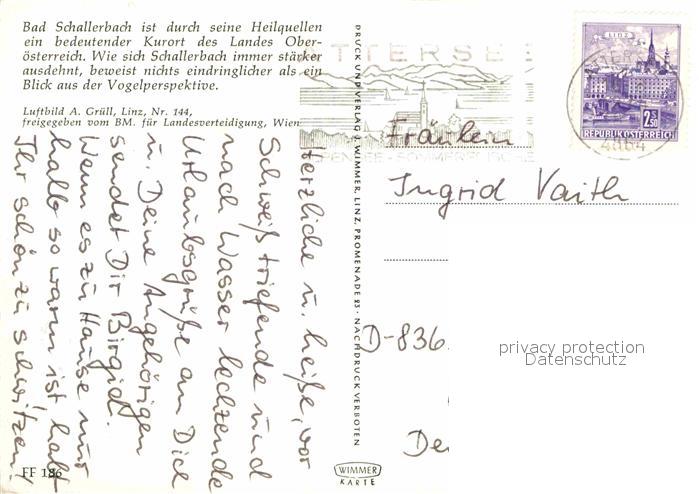 Bad Schallerbach ist durch seine Heilquellen
ein bedeutender Kurort des Landes Ober-
österreich. Wie sich Schallerbach immer stärker
ausdehnt, beweist nichts eindringlicher als ein
Blick aus der Vogelperspektive.
Luftbild A. Grüll, Linz, Nr. 144,
freigegeben vom BM. für Landesverteidigung, Wien
Herzliche u. heiße, vor
Schweiß triefende und
nach Wasser lechzende
Urlaubsgrüße an Dich
u. Deine Angehörigen
sendet Dir Birgid.
Wenn es zu Hause nur
halb so warm ist, habt
Ihr schön zu schwitzen,
FF 186
DRUCK UND VERLAG J. WIMMER, LINZ, PROMENADE 23 · NACHDRUCK VERBOTEN
WIMMER
KARTE
ATTERSEE
LINZ
2,50
REPUBLIK ÖSTERREICH
4864
Fräulein
Ingrid Vaith
D-836
De
privacy protection
Datenschutz